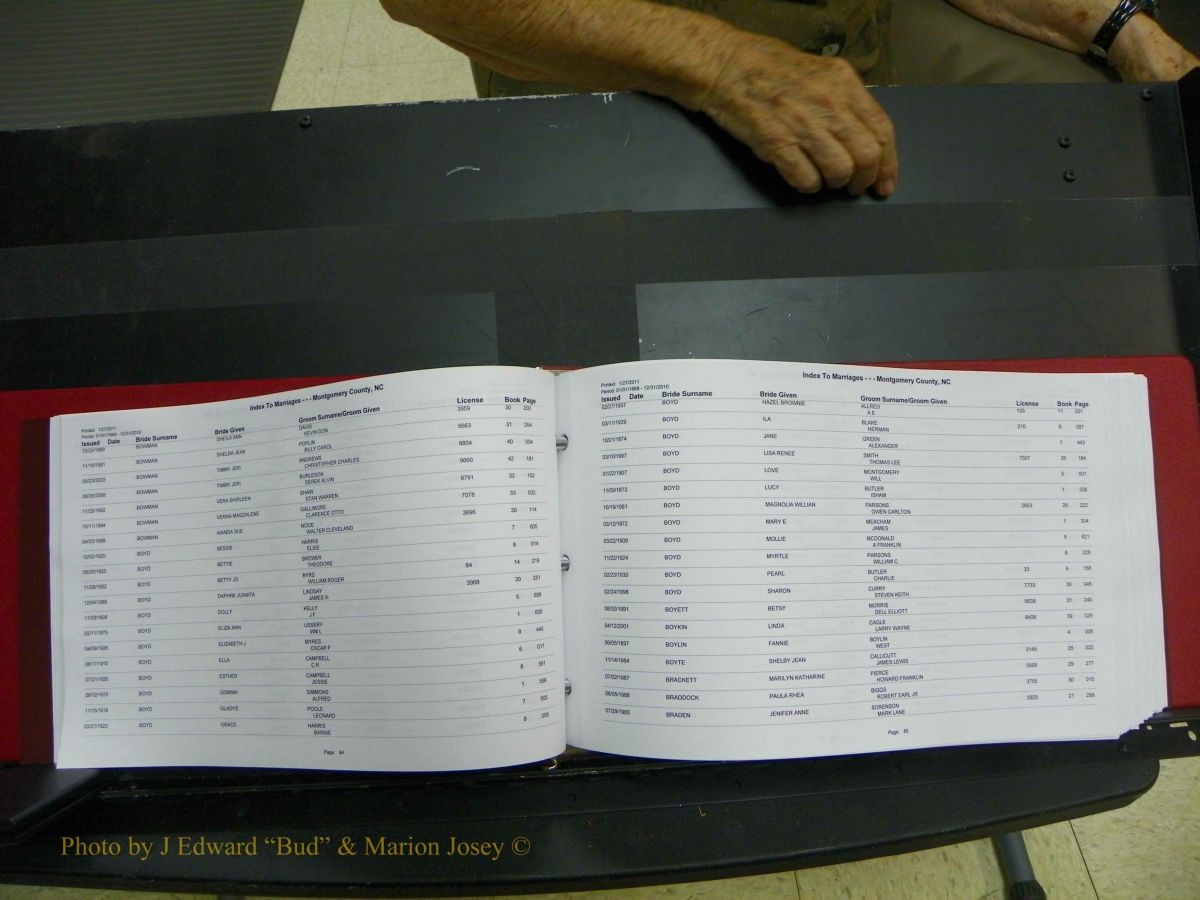 Index To Marriages - - - Montgomery County, NC
Printed 1/27/2011
Period: 01/01/1868 - 12/31/2010
Issued Date Bride Surname Bride Given Groom Surname/Groom Given License Book Page
BOWMAN SHEILA ANN DAVIS 3959 30 200
KEVIN DON
BOWMAN SHELBA JEAN POPLIN 6663 31 254
BILLY CAROL
BOWMAN TIMMY JERI ANDREWS 6804 40
CHRISTOPHER CHARLES
BOWMAN TIMMY JERI BURLESON 9660 42 181
DEREK ALVIN
BOWMAN VERA SHIRLEEN SHAW 6791 32
ETAN WARREN
BOWMAN VERNA MAGDALENE GALLIMORE 7078 33 032
CLARENCE OTTO
BOWMAN WANDA SUE NODE 3696 30 114
WALTER CLEVELAND
12/02/1920 BOYD BESSIE HARRIS 7 605
ELSIE
BOYD BETTIE BREWER 8 014
THEODORE
BOYD BETTY JO BYRD 64 14 219
WILLIAM ROGER
BOYD DAPHNE JUANITA LINDSAY 3968 30 251
JAMES III
BOYD DOLLY KELLY 5 659
J F
02/11/1875 BOYD ELIZA ANN USSERY 1 605
WM L
BOYD ELIZABETH J MYRES 8 440
OSCAR F
BOYD ELLA CAMPBELL 6 017
C R
BOYD ESTHER CAMPBELL 8 391
JESSIE
BOYD GEMIMA SIMMONS 1
ALFRED
BOYD GLADYS POOLE 7 505
LEONARD
03/27/1923 BOYD GRACE HARRIS 8 059
BARNIE
Page: 84
Index To Marriages - - - Montgomery County, NC
Printed 1/27/2011
Period: 01/01/1868 - 12/31/2010
Issued Date Bride Surname Bride Given Groom Surname/Groom Given License Book Page
02/27/1937 BOYD HAZEL BROWNIE ALLRED 133 11 021
A E
03/11/1929 BOYD ILA BLAKE 210 9 087
HERMAN
10/21/1874 BOYD JANE GREEN 1 443
ALEXANDER
03/10/1997 BOYD LISA RENEE SMITH 7507 35 184
THOMAS LEE
01/22/1907 BOYD LOVE MONTGOMERY 5 601
WILL
11/09/1873 BOYD LUCY BUTLER 1
ISHAM
10/19/1981 BOYD MAGNOLIA WILLIAN PARSONS 2663 26 222
OWEN CARLTON
03/12/1872 BOYD MARY E MEACHAM 1 304
JAMES
03/22/1909 BOYD MOLLIE MCDONALD 5 821
A FRANKLIN
11/22/1924 BOYD MYRTLE PARSONS 8 226
WILLIAM C
02/23/1930 BOYD PEARL BUTLER 33 9 158
CHARLIE
02/24/1998 BOYD SHARON CURRY 7733 36 045
STEVEN KEITH
08/30/1991 BOYETT BETSY MORRIS 6638 31 240
DELL ELLIOTT
04/12/2001 BOYKIN LINDA CAGLE 8408 39 029
LARRY WAYNE
06/05/1897 BOYLIN FANNIE BOYLIN 4 006
WEST
11/14/1984 BOYTE SHELBY JEAN CALLICUTT 3145 28 022
JAMES LEWIS
07/02/1987 BRACKETT MARILYN KATHARINE PIERCE 3669 29 277
HOWARD FRANKLIN
08/05/1988 BRADDOCK PAULA RHEA BIGGS 3755 30 010
ROBERT EARL JR
07/29/1983 BRADEN JENIFER ANNE SORENSON 2923 27 298
MARK LANE
Page: 85
Photo by J Edward “Bud” & Marion Josey ©